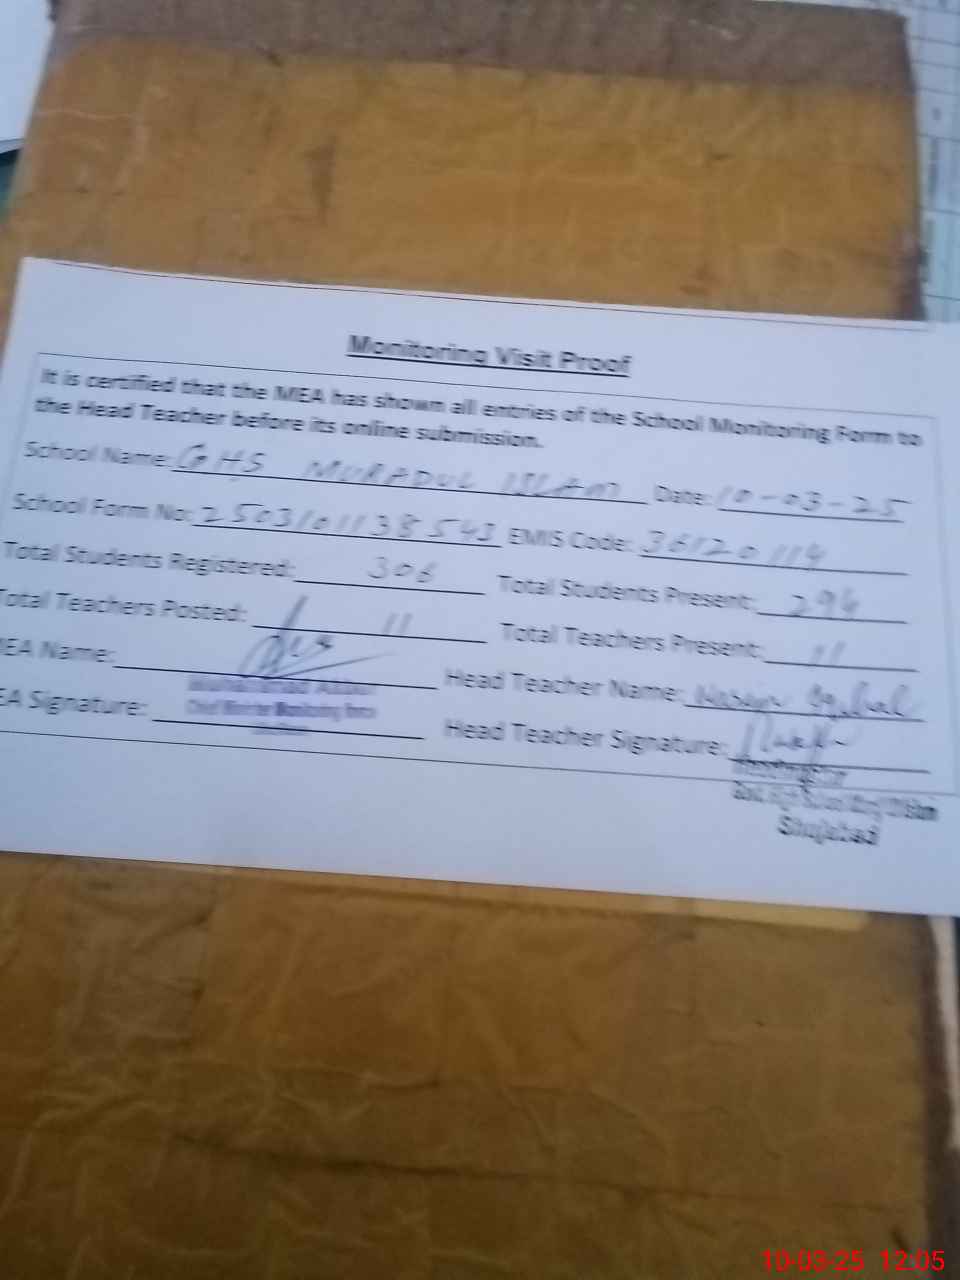 Monitoring Visit Proof
It is certified that the MEA has shown all entries of the School Monitoring Form to
the Head Teacher before its online submission.
School Name: GHS MURADUL ISLAM Date: 10-03-25
School Form No: 2503101138543 EMIS Code: 36120114
Total Students Registered: 306 Total Students Present: 296
Total Teachers Posted: 11 Total Teachers Present: 11
MEA Name: Head Teacher Name: Iqbal
Muhammad
Chief Minister Monitoring Force
EA Signature: Head Teacher Signature:
Headmaster
Govt. High School
Shujabad
10-03-25 12:05